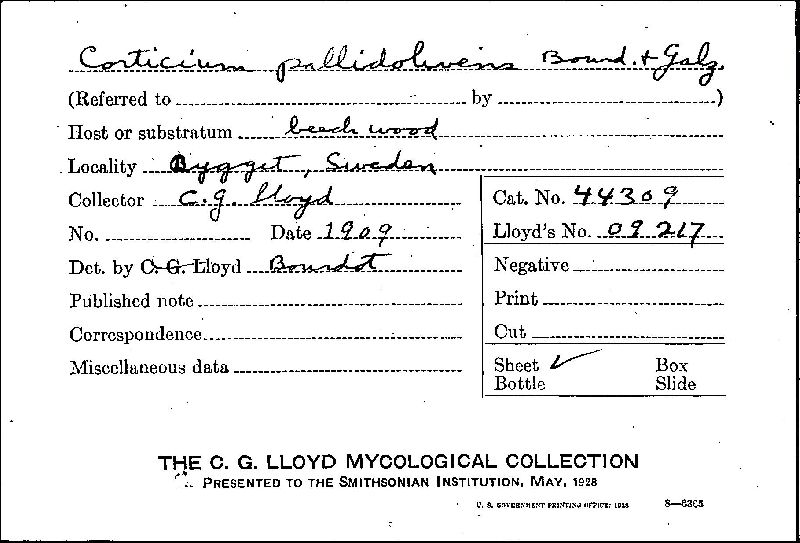 Corticium pallidolivens Bourd. + Galz.
(Referred to by )
Host or substratum beech wood
Locality Bygget, Sweden
Collector C. G. Lloyd
Cat. No. 44309
No. Date 1909
Lloyd's No. 09217
Det. by C. G. Lloyd Bourdot
Negative
Published note
Print
Correspondence
Cut
Miscellaneous data
Sheet ✓ Box
Bottle Slide
THE C. G. LLOYD MYCOLOGICAL COLLECTION
PRESENTED TO THE SMITHSONIAN INSTITUTION, MAY, 1928
U. S. GOVERNMENT PRINTING OFFICE: 1928 8—6305